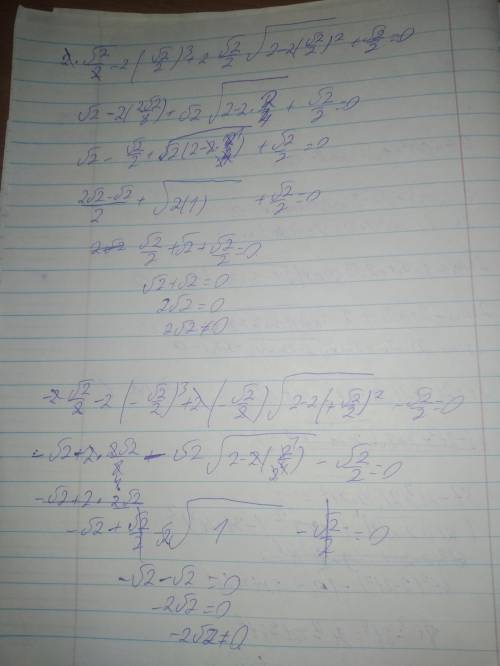 2·√2/2 - 2(√2/2)³ + 2 √2/2 √(2-2(√2/2)²) + √2/2 = 0
√2 - 2(2√2/8) + √2 √(2-2·2/4) + √2/2 = 0
√2 - √2/2 + √(2(2-2·2/4)) + √2/2 = 0
(2√2-√2)/2 + √(2(1)) + √2/2 = 0
√2/2 + √2 + √2/2 = 0
√2+√2=0
2√2=0
2√2≠0
-2 √2/2 - 2(-√2/2)³ + 2(-√2/2) √(2-2(+√2/2)²) - √2/2 = 0
-√2+2·2√2/8 - √2 √(2-2(2/4)) - √2/2 = 0
-√2+2·2√2
-√2 + √2/2 - √2 √1 - √2/2 = 0
-√2-√2=0
-2√2=0
-2√2≠0